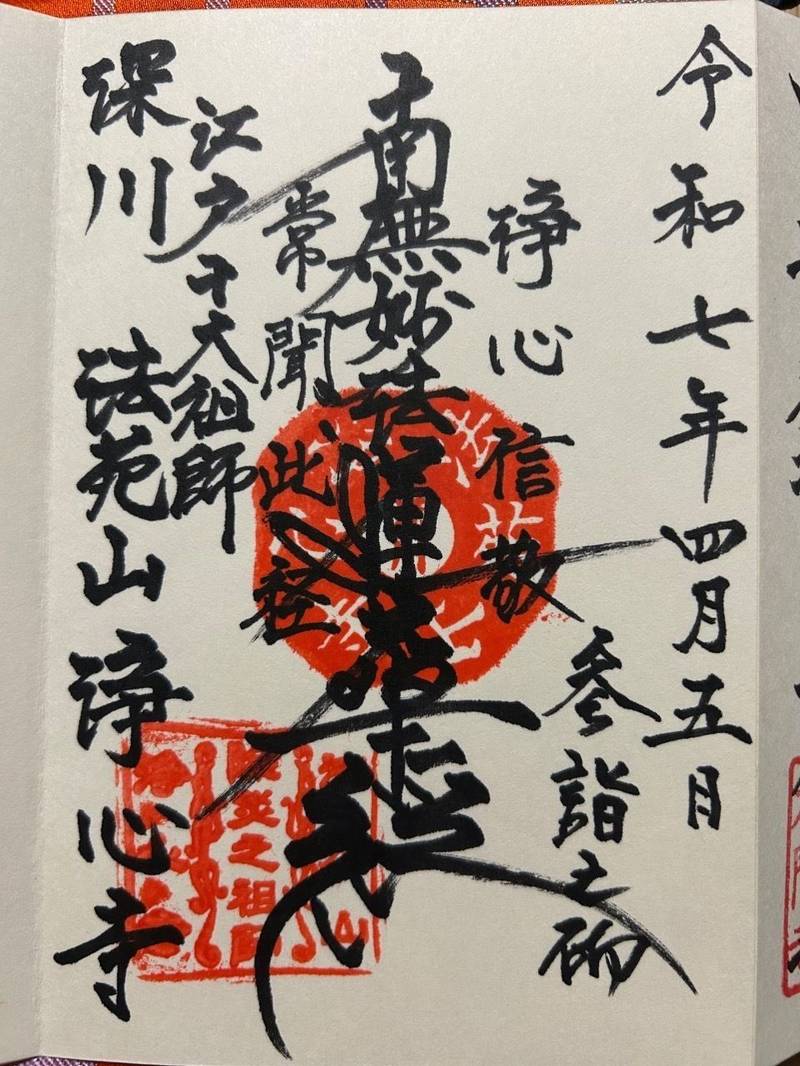 令和七年四月五日
参詣之砌
浄心信敬
南無妙法蓮華経
常聞此経
江戸十大祖師
深川 法苑山 浄心寺
之祖師